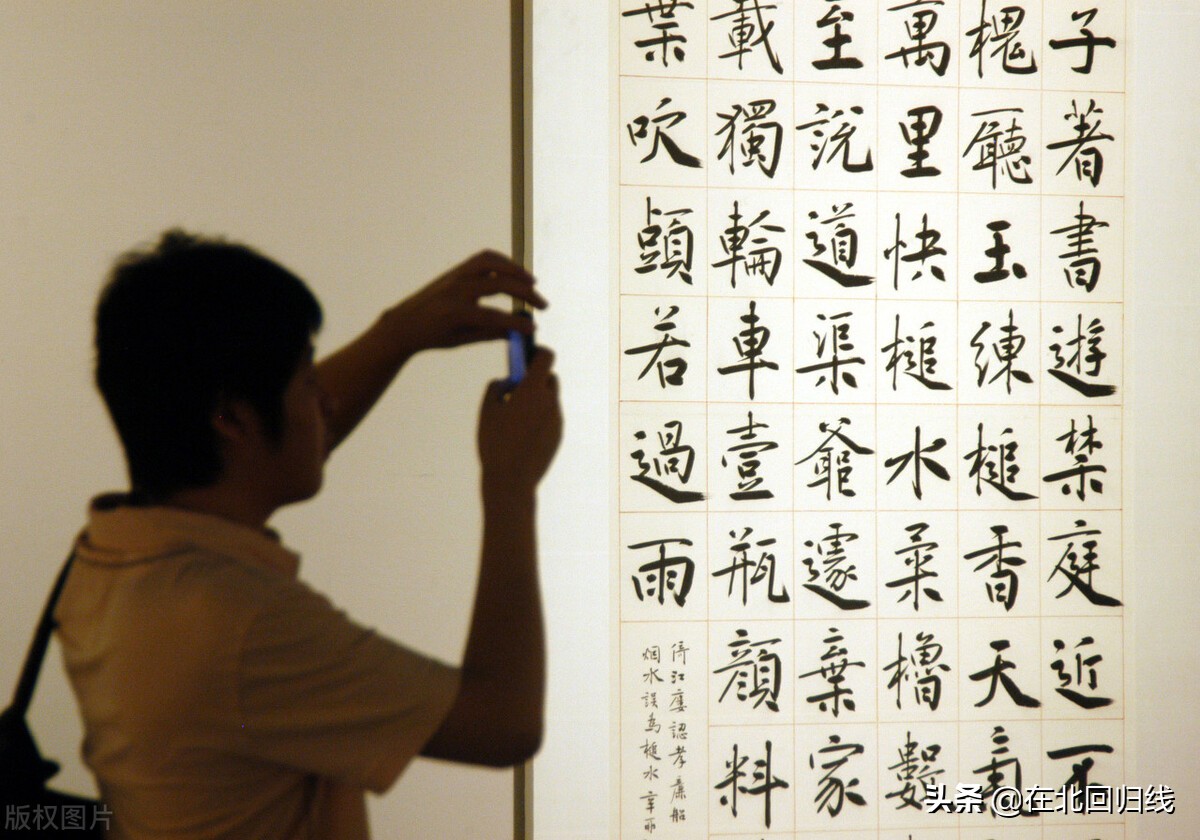 子著書遊禁庭近
槐廳玉練槌香天氣
萬里快槌水櫓
至說道渠爺遽棄家
載獨輪車壹瓶顏料
葉吹頭若過雨
倚江廔認孝廉船
烟水誤為槌水
版权图片
头条 @在北回归线